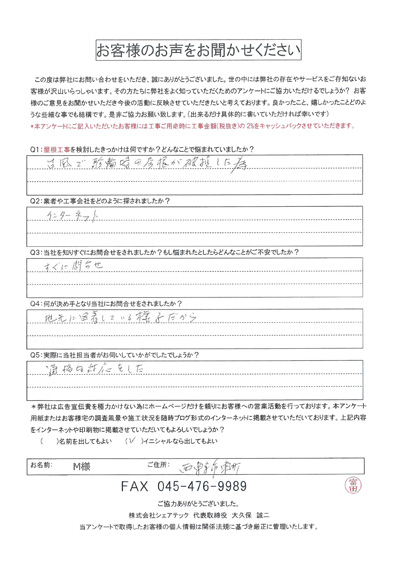 お客様のお声をお聞かせください
この度は弊社にお問い合わせをいただき、誠にありがとうございました。世の中には弊社の存在やサービスをご存知ないお
客様が沢山いらっしゃいます。その方たちに弊社をよく知っていただくためのアンケートにご協力いただけるでしょうか? お客
様のご意見をお聞かせいただき今後の活動に反映させていただきたいと考えております。良かったこと、嬉しかったことどのよ
うな些細な事でも結構です。是非ご協力お願い致します。(出来るだけ具体的に書いていただければ幸いです)
*本アンケートにご記入いただいたお客様には工事ご用命時に工事金額(税抜き)の2%をキャッシュバックさせていただきます。
Q1:屋根工事を検討したきっかけは何ですか?どんなことで悩まれていましたか?
台風で駐輪場の屋根が破損した為
Q2:業者や工事会社をどのように探されましたか?
インターネット
Q3:当社を知りすぐにお問合せをされましたか?もし悩まれたとしたらどんなことがご不安でしたか?
すぐに問合せ
Q4:何が決め手となり当社にお問合せをされましたか?
地元に密着している様子だから
Q5:実際に当社担当者がお伺いしていかがでしたでしょうか?
対応をした
*弊社は広告宣伝費を極力かけない為にホームページだけを頼りにお客様への営業活動を行っております。本アンケート
用紙またはお客様宅の調査風景や施工状況を随時ブログ形式のインターネットに掲載させていただいております。上記内容
をインターネットや印刷物に掲載させていただいてもよろしいでしょうか?
( )名前を出してもよい (✓)イニシャルなら出してもよい
お名前: M様 ご住所:
FAX 045-476-9989
富田
ご協力ありがとうございました。
株式会社シェアテック 代表取締役 大久保 誠二
当アンケートで取得したお客様の個人情報は関係法規に基づき厳正に管理いたします。